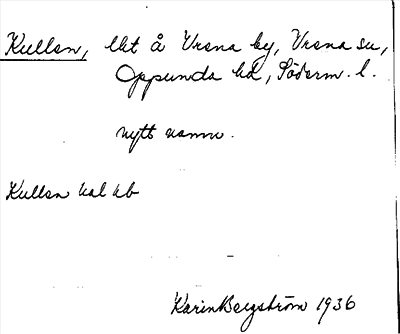 Kullen, lht å Vrena by, Vrena sn,
Oppunda hd, Söderm. l.
nytt namn.
Kullen kal kb
Karin Bergström 1936